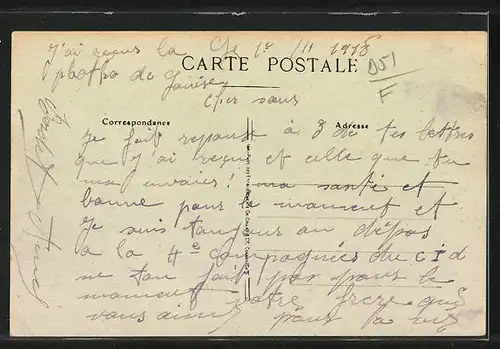 J'ai reçus la Le 1er /11 1918
photto de Louise
CARTE POSTALE
D51
F
cher sœur
Correspondance
Adresse
Je fait reponse à 3 de tes lettres
que j'ai reçue et celle que tu
ma envoiés! ma santé et
bonne pour le moment et
Je suis toujour au dépos
a la 4e compagnies du CID
ne ten fait pas pour le
moment votre frere que
vous aime pour la vie